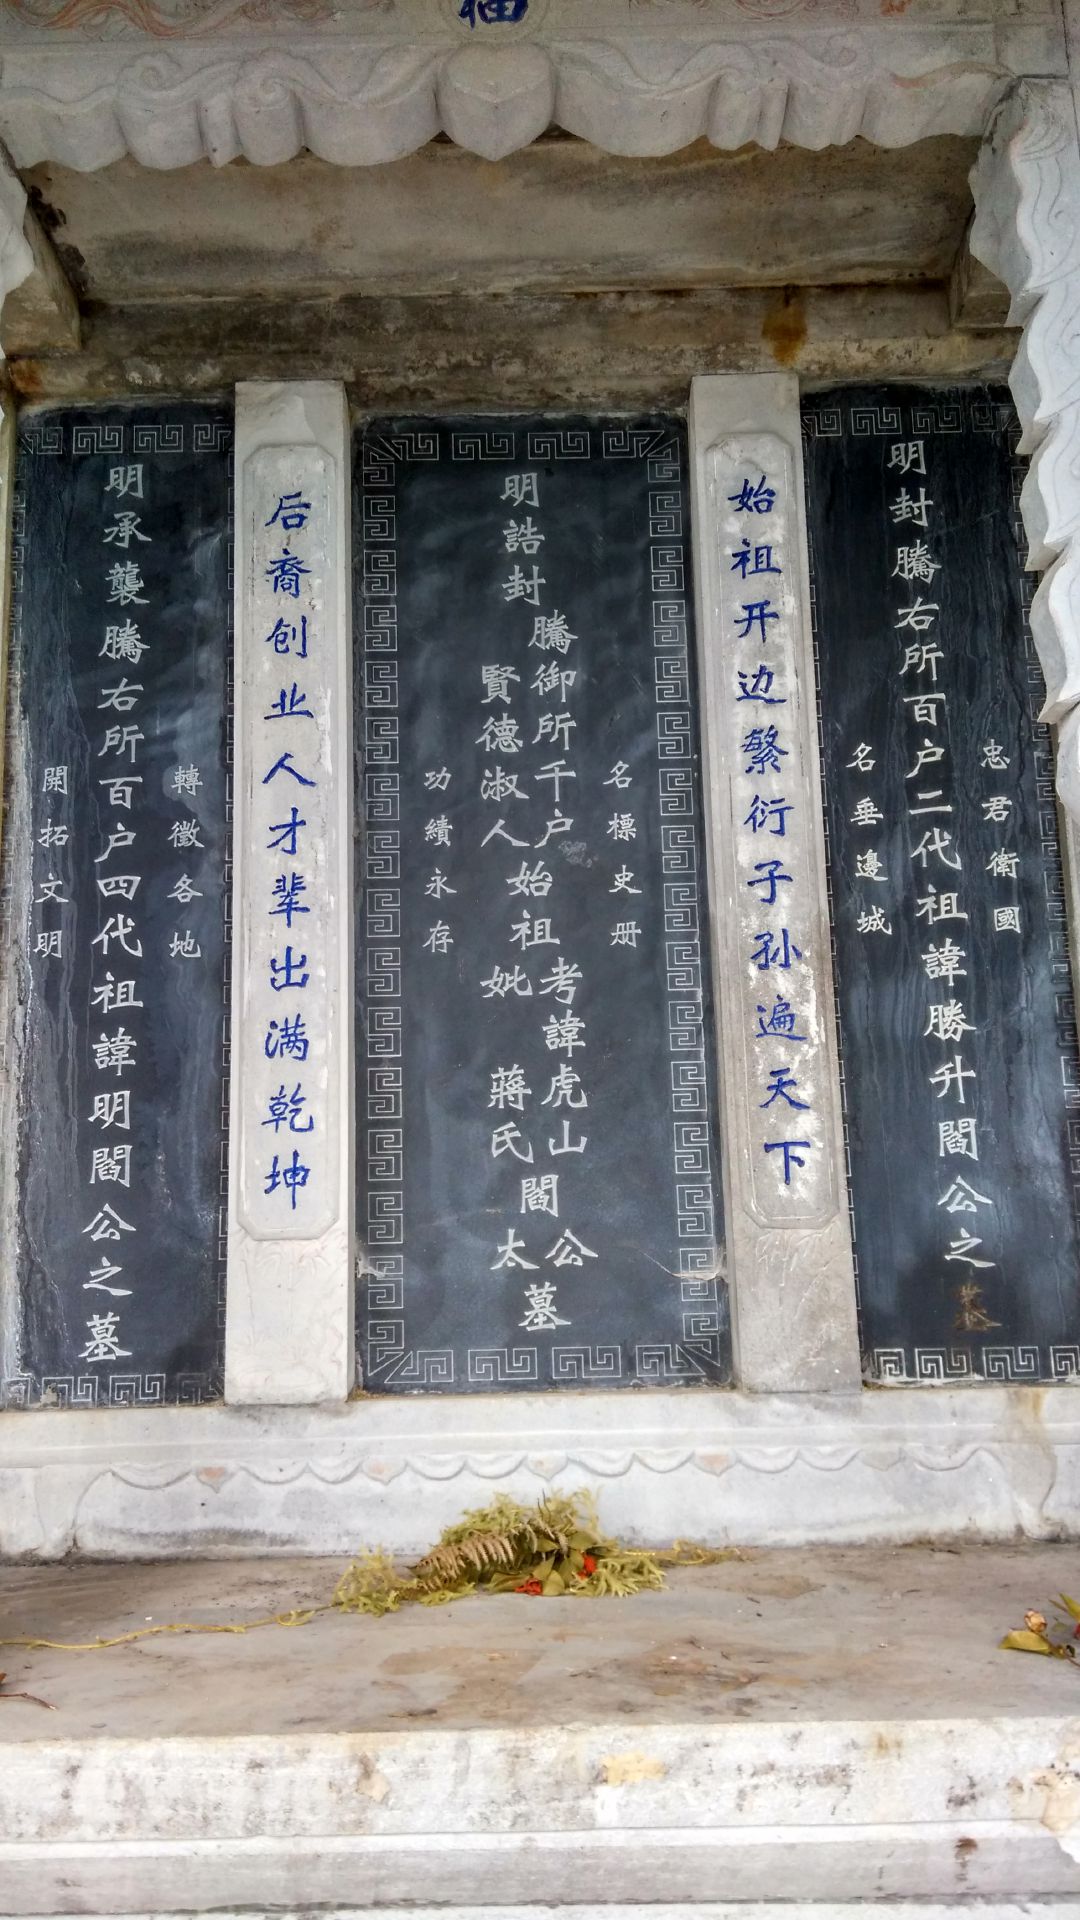 福
忠君衛國
明封騰右所百户二代祖諱勝升閻公之墓
名垂邊城
始祖开边繁衍子孙遍天下
名標史册
明誥封騰御所千户賢德淑人始祖考諱虎山妣蔣氏閻公太墓
功績永存
后裔创业人才辈出满乾坤
轉徵各地
明承襲騰右所百户四代祖諱明閻公之墓
開拓文明